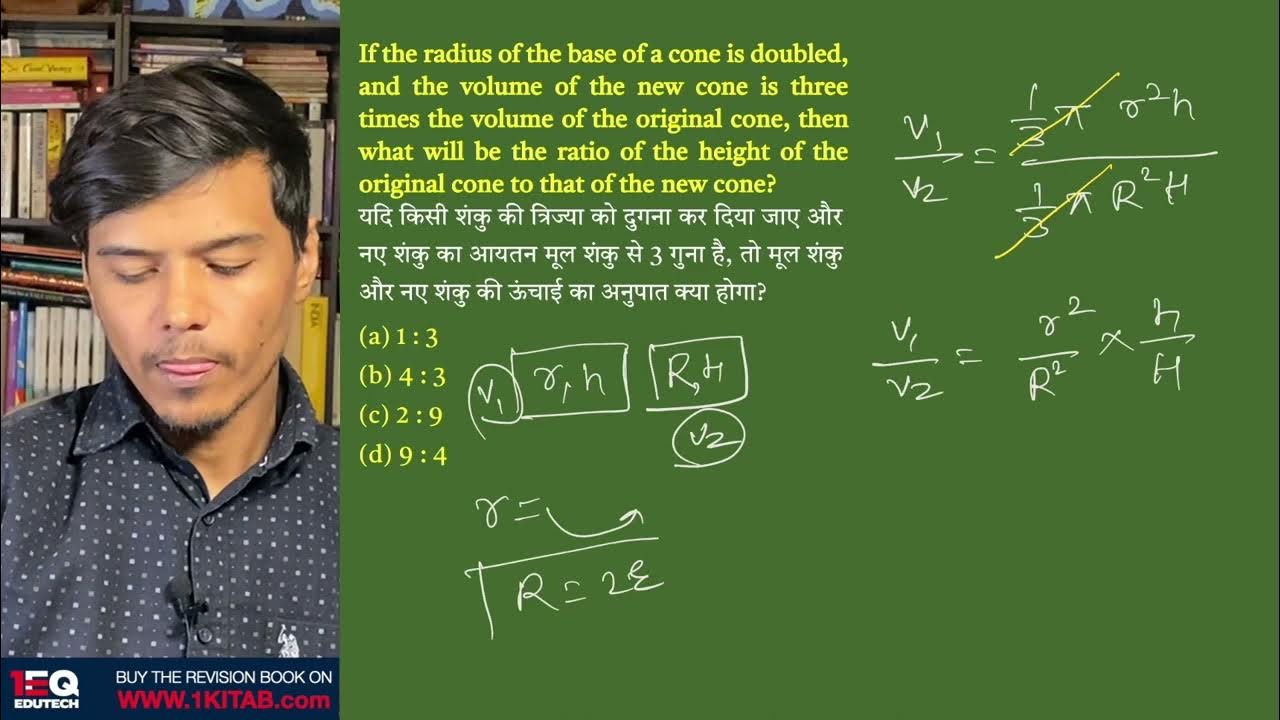 If the radius of the base of a cone is doubled,
and the volume of the new cone is three
times the volume of the original cone, then
what will be the ratio of the height of the
original cone to that of the new cone?
यदि किसी शंकु की त्रिज्या को दुगना कर दिया जाए और
नए शंकु का आयतन मूल शंकु से 3 गुना है, तो मूल शंकु
और नए शंकु की ऊंचाई का अनुपात क्या होगा?
(a) 1 : 3
(b) 4 : 3
(c) 2 : 9
(d) 9 : 4
V₁ r, h R, H
V₂
r =
R = 2r
V₁/V₂ = 1/3 π r²h / 1/3 π R²H
V₁/V₂ = r²/R² × h/H
1EQ
EDUTECH
BUY THE REVISION BOOK ON
WWW.1KITAB.com